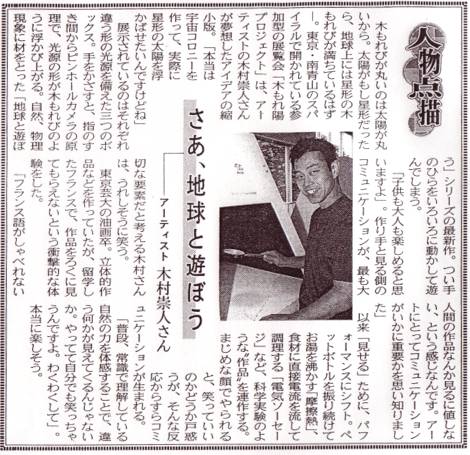 人物点描
木もれびが丸いのは太陽が丸
いから。太陽がもし星形だった
ら、地球上には星形の木
もれびが満ちているはず
―。東京・南青山のスパ
イラルで開かれている参
加型の展覧会「木もれ陽
プロジェクト」は、アー
ティストの木村崇人さん
が夢想したアイデアの縮
小版。「本当は
宇宙コロニーを
作って、実際に
星形の太陽を浮
かばせたいんですけどね」
展示されているのはそれぞれ
違う形の光源を備えた三つのボ
ックス。手をかざすと、指のす
き間からピンホールカメラの原
理で、光源の形が木もれびのよ
うに浮かび上がる。自然、物理
現象に材をとった「地球と遊ぼ
さあ、地球と遊ぼう
アーティスト 木村崇人さん
う」シリーズの最新作。つい手
のひらをいろいろに動かして遊
んでしまう。
「子供も大人も楽しめると思
いますよ」。作り手と見る側の
コミュニケーションが、最も大
切な要素だと考える木村さん
は、うれしそうに笑う。
東京芸大の油画卒。立体的作
品などを作っていたが、留学し
たフランスで、作品をろくに見
てもらえないという衝撃的な体
験をした。
「フランス語がしゃべれない
人間の作品なんか見るに値しな
い、という感じなんです。アー
トにとってコミュニケーション
がいかに重要かを思い知りまし
た」
以来「見せる」ために、パフ
ォーマンスにシフト。ペ
ットボトルを振り続けて
お湯を沸かす「摩擦熱」、
食材に直接電流を流して
調理する「電気ソーセー
ジ」など、科学実験のよ
うな“作品”を連作する。
まじめな顔でやられる
と、笑っていい
のかどうか戸惑
うが、そんな反
応からすらコミ
ュニケーションが生まれる。
「普段、常識で理解している
自然の力を体感することで、違
う何かが見えてくるんじゃない
か。やってて自分でも笑っちゃ
うんですよ。わくわくして」。
本当に楽しそう。